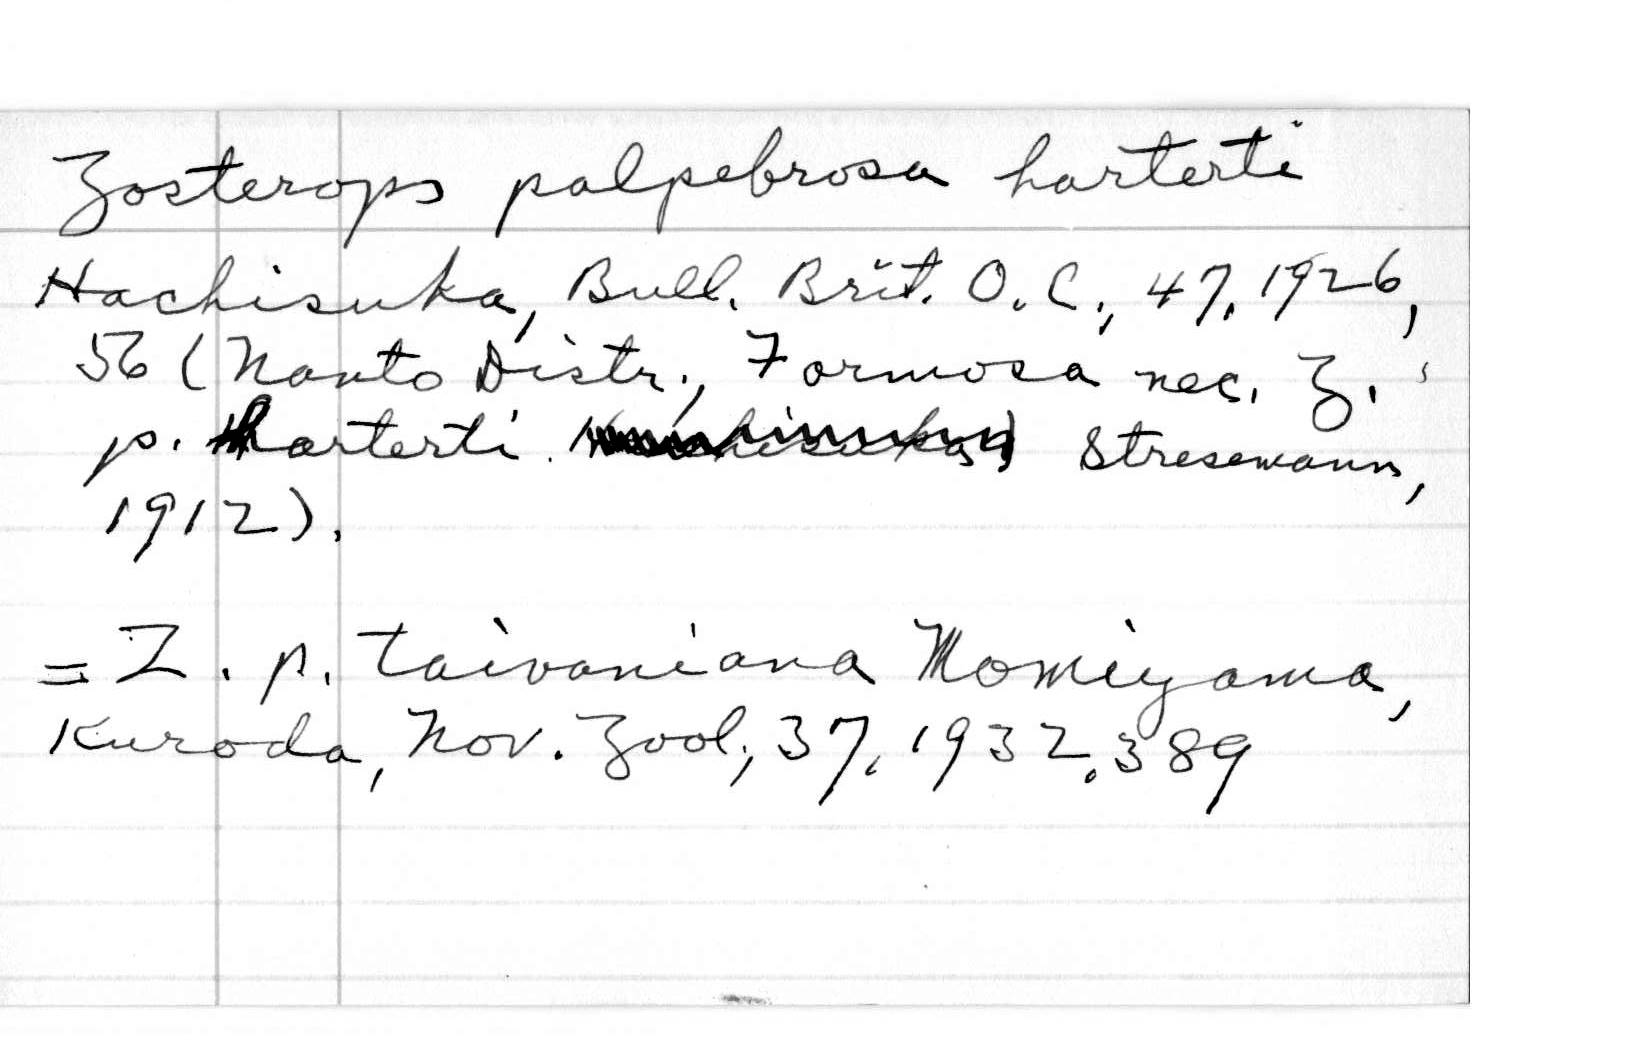 Zosterops palpebrosa harterti
Hachisuka, Bull. Brit. O.C., 47, 1926,
56 (Nanto Distr., Formosa nec. Z.
p. harterti Stresemann,
1912).
= Z. p. taivaniana Momiyama,
Kuroda, Nov. Zool, 37, 1932, 389